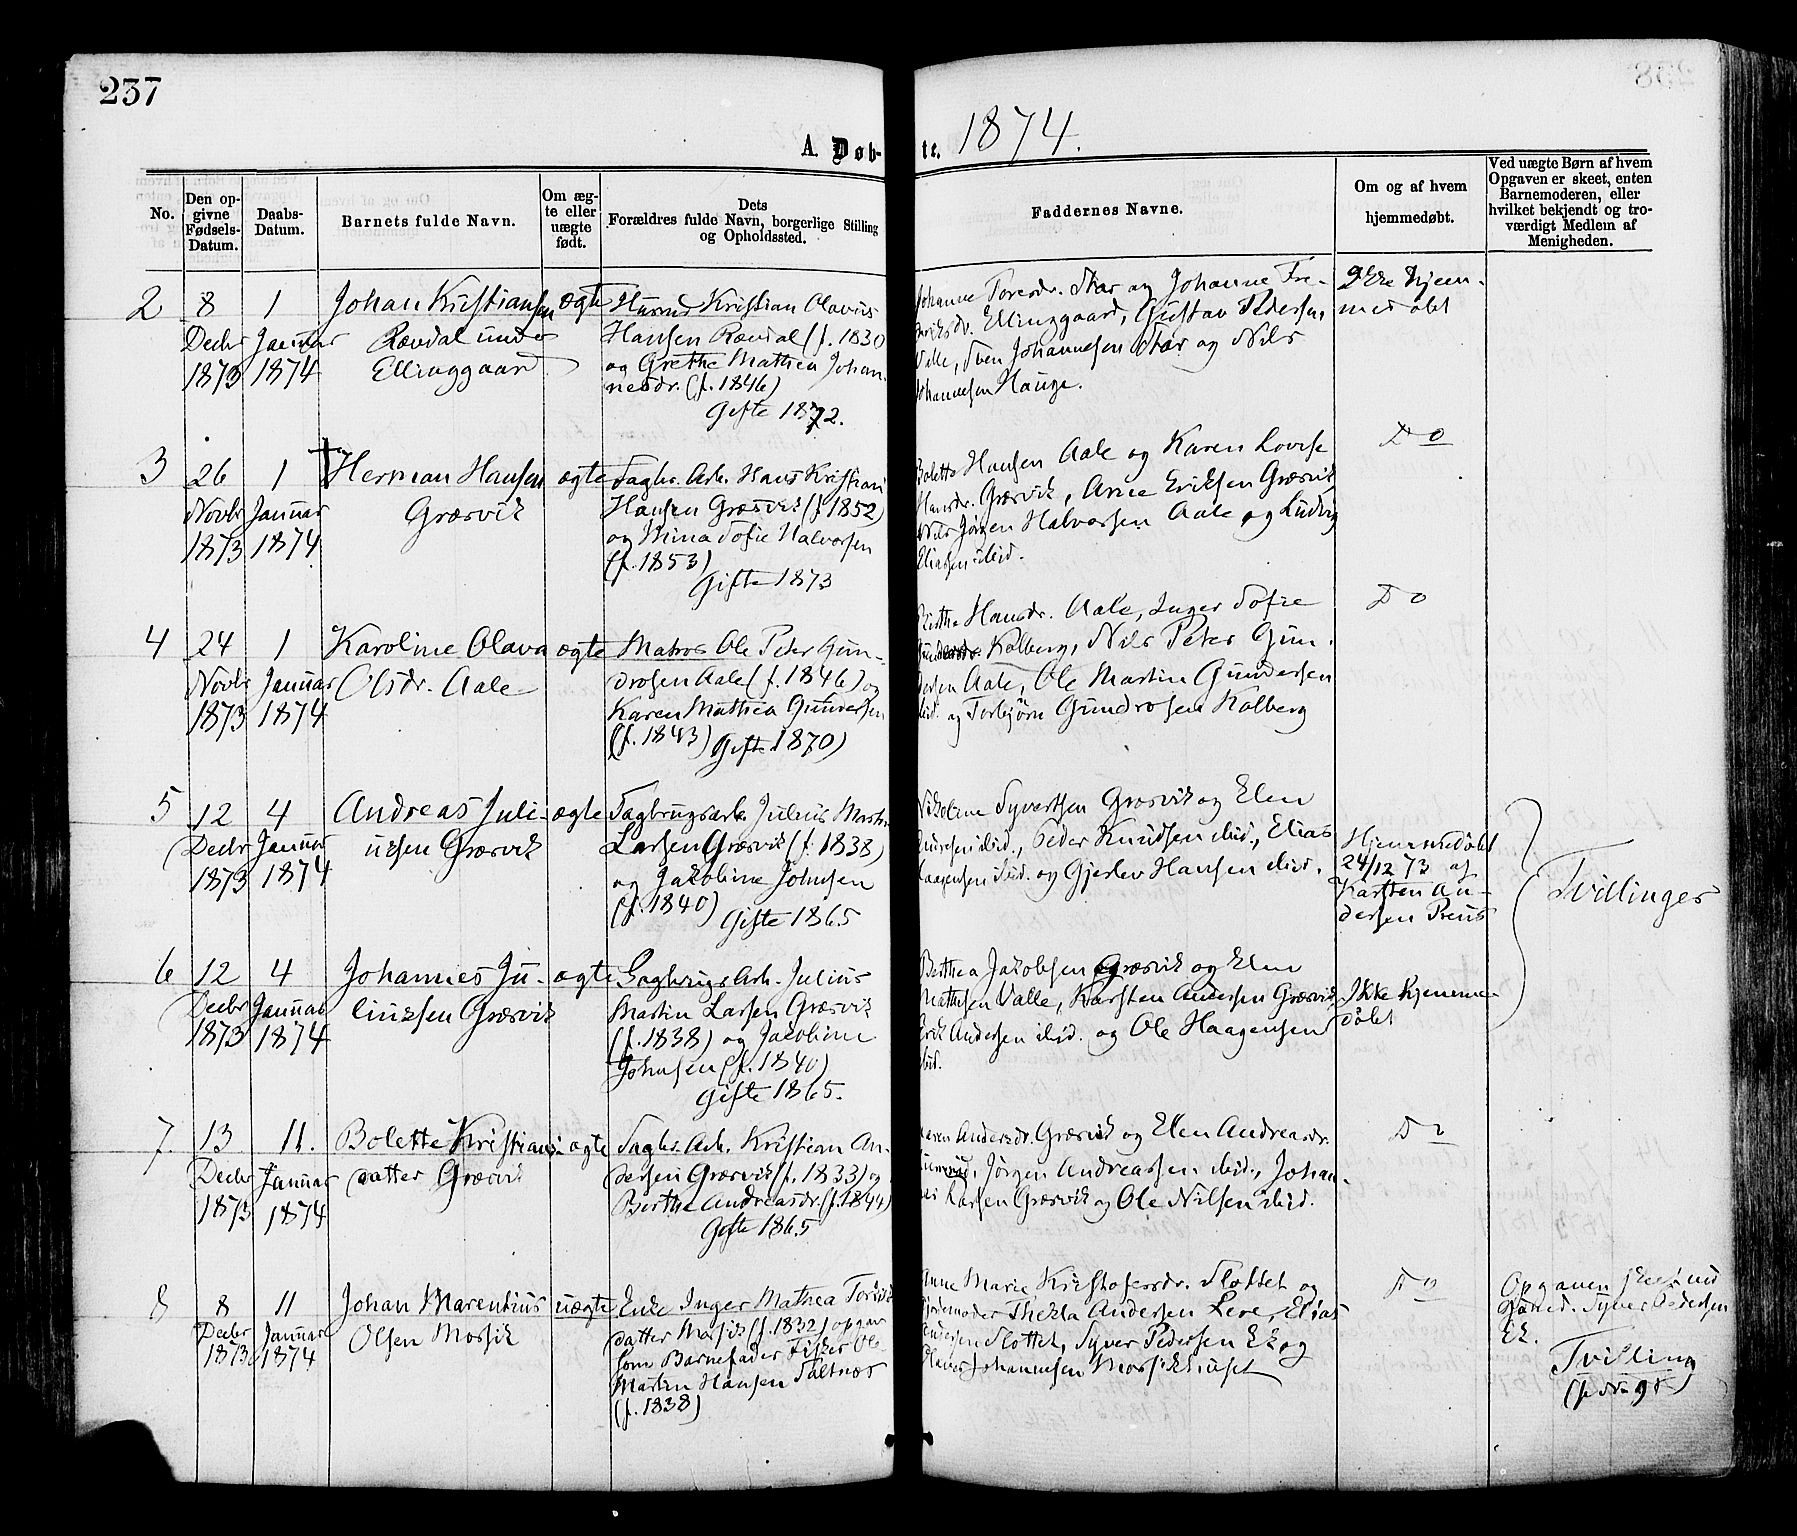 237
1874.
A. Døb-
te.
No.
Den op-
givne
Fødsels-
Datum.
Daabs-
Datum.
Barnets fulde Navn.
Om æg-
te eller
uægte
født.
Dets
Forældres fulde Navn, borgerlige Stilling
og Opholdssted.
Faddernes Navne.
Om og af hvem
hjemmedøbt.
Ved uægte Børn af hvem
Opgaven er skeet, enten
Barnemoderen, eller
hvilket bekjendt og tro-
værdigt Medlem af
Menigheden.
2
8
Decbr
1873
1
Januar
1874
Johan Kristiansen
Rævdal under
Ellinggaard
ægte
Husmd Kristian Olavus
Hansen Rævdal (f. 1830
og Grethe Mathea Johan-
nesdr. (f. 1846)
Gifte 1872.
Johanne Toresdr. Thor og Johanne Fre-
driksdr. Ellinggaard, Gustav Pedersen,
Valle, Sven Johannesen Thor og Nils
Johannesen Hauge.
Ikke hjem-
medøbt
3
26
Novbr
1873
1
Januar
1874
† Herman Hansen
Græsvik
ægte
Sagbr. Arb. Hans Kristian
Hansen Græsvik (f. 1852)
og Mina Sofie Halvorsen
(f. 1853)
Gifte 1873
Bolette Hansen Aale og Karen Lovise
Hansdr. Græsvik, Arne Eriksen Græsvik
Nils Jørgen Halvorsen Aale og Ludvig
Eliassen ibid.
Do
4
24
Novbr
1873
1
Januar
1874
Karoline Olava
Olsdr. Aale
ægte
Matros Ole Peter Gun-
drosen Aale (f. 1846) og
Karen Mathea Gundersen
(f. 1843) Gifte 1870)
Birthe Hansdr. Aale, Inger Sofie
Gundersdr. Kolberg, Nils Peter Gun-
dersen Aale, Ole Martin Gundersen
ibid. og Torbjörn Gundrosen Kolberg
Do
5
12
Decbr
1873
4
Januar
1874
Andreas Juli-
ussen Græsvik
ægte
Sagbrugsarb. Julius Martin
Larsen Græsvik (f. 1838)
og Jakobine Johnsen
(f. 1840)
Gifte 1865
Nikoline Syvertsen Græsvik og Elen
ibid., Peder Knudsen ibid., Elias
Haagensen ibid. og Gjerlev Hansen ibid.
Hjemmedøbt
24/12 73 af
Karsten An-
dersen Preus
Tvillinger
6
12
Decbr
1873
4
Januar
1874
Johannes Ju-
liussen Græsvik
ægte
Sagbrugs Arb. Julius
Martin Larsen Græsvik
(f. 1838) og Jakobine
Johnsen (f. 1840)
Gifte 1865.
Berthea Jakobsen Græsvik og Elen
Mathisen Valle, Karsten Andersen Græsvik
Erik Andersen ibid. og Ole Haagensen
ibid.
Ikke hjemme-
døbt
7.
13
Decbr
1873
11.
Januar
1874
Bolette Kristians-
datter Græsvik
ægte
Sagbr. Arb. Kristian An-
dersen Græsvik (f. 1833) og
Berthe Andreasdr. (f. 1844)
Gifte 1865
Karen Andersdr. Græsvik og Elen Andreasdr.
Jørgen Andreassen ibid., Johan-
nes Larsen Græsvik og Ole Nilsen ibid.
Do
8
8
Decbr
1873
11
Januar
1874
Johan Marentius
Olsen Mossik
uægte
Enke Inger Mathea Torkils
datter Mossik (f. 1832) opgav
som Barnefader Fisker Ole
Martin Hansen Saltnæs
(f. 1838)
Anne Marie Kristofersdr. Slottet og
Gjordemoder Thekla Andersen Lere, Elias
Andersen Slottet, Syver Pedersen Ek og
Olaves Johannesen Mossik
Do
Opgaven skeet ved
Gaard. Syver Pedersen
Ek.
Tvilling
(se No 98)